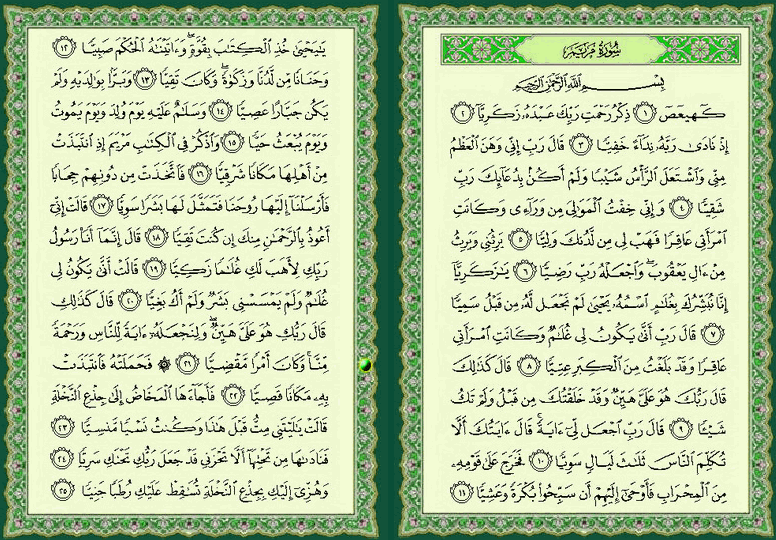 سُورَةُ مَرْيَمَ
بِسْمِ اللَّهِ الرَّحْمَٰنِ الرَّحِيمِ
كٓهيعٓصٓ ١ ذِكْرُ رَحْمَتِ رَبِّكَ عَبْدَهُۥ زَكَرِيَّآ ٢
إِذْ نَادَىٰ رَبَّهُۥ نِدَآءً خَفِيًّا ٣ قَالَ رَبِّ إِنِّى وَهَنَ ٱلْعَظْمُ
مِنِّى وَٱشْتَعَلَ ٱلرَّأْسُ شَيْبًا وَلَمْ أَكُنۢ بِدُعَآئِكَ رَبِّ
شَقِيًّا ٤ وَإِنِّى خِفْتُ ٱلْمَوَٰلِىَ مِن وَرَآءِى وَكَانَتِ
ٱمْرَأَتِى عَاقِرًا فَهَبْ لِى مِن لَّدُنكَ وَلِيًّا ٥ يَرِثُنِى وَيَرِثُ
مِنْ ءَالِ يَعْقُوبَ ۖ وَٱجْعَلْهُ رَبِّ رَضِيًّا ٦ يَٰزَكَرِيَّآ
إِنَّا نُبَشِّرُكَ بِغُلَٰمٍ ٱسْمُهُۥ يَحْيَىٰ لَمْ نَجْعَل لَّهُۥ مِن قَبْلُ سَمِيًّا
٧ قَالَ رَبِّ أَنَّىٰ يَكُونُ لِى غُلَٰمٌ وَكَانَتِ ٱمْرَأَتِى
عَاقِرًا وَقَدْ بَلَغْتُ مِنَ ٱلْكِبَرِ عِتِيًّا ٨ قَالَ كَذَٰلِكَ
قَالَ رَبُّكَ هُوَ عَلَىَّ هَيِّنٌ وَقَدْ خَلَقْتُكَ مِن قَبْلُ وَلَمْ تَكُ
شَيْـًٔا ٩ قَالَ رَبِّ ٱجْعَل لِّىٓ ءَايَةً ۚ قَالَ ءَايَتُكَ أَلَّا
تُكَلِّمَ ٱلنَّاسَ ثَلَٰثَ لَيَالٍ سَوِيًّا ١٠ فَخَرَجَ عَلَىٰ قَوْمِهِۦ
مِنَ ٱلْمِحْرَابِ فَأَوْحَىٰٓ إِلَيْهِمْ أَن سَبِّحُوا۟ بُكْرَةً وَعَشِيًّا ١١
يَٰيَحْيَىٰ خُذِ ٱلْكِتَٰبَ بِقُوَّةٍ ۖ وَءَاتَيْنَٰهُ ٱلْحُكْمَ صَبِيًّا ١٢
وَحَنَانًا مِّن لَّدُنَّا وَزَكَوٰةً ۖ وَكَانَ تَقِيًّا ١٣ وَبَرًّۢا بِوَٰلِدَيْهِ وَلَمْ
يَكُن جَبَّارًا عَصِيًّا ١٤ وَسَلَٰمٌ عَلَيْهِ يَوْمَ وُلِدَ وَيَوْمَ يَمُوتُ
وَيَوْمَ يُبْعَثُ حَيًّا ١٥ وَٱذْكُرْ فِى ٱلْكِتَٰبِ مَرْيَمَ إِذِ ٱنتَبَذَتْ
مِنْ أَهْلِهَا مَكَانًا شَرْقِيًّا ١٦ فَٱتَّخَذَتْ مِن دُونِهِمْ حِجَابًا
فَأَرْسَلْنَآ إِلَيْهَا رُوحَنَا فَتَمَثَّلَ لَهَا بَشَرًا سَوِيًّا ١٧ قَالَتْ إِنِّىٓ
أَعُوذُ بِٱلرَّحْمَٰنِ مِنكَ إِن كُنتَ تَقِيًّا ١٨ قَالَ إِنَّمَآ أَنَا۠ رَسُولُ
رَبِّكِ لِأَهَبَ لَكِ غُلَٰمًا زَكِيًّا ١٩ قَالَتْ أَنَّىٰ يَكُونُ لِى
غُلَٰمٌ وَلَمْ يَمْسَسْنِى بَشَرٌ وَلَمْ أَكُ بَغِيًّا ٢٠ قَالَ كَذَٰلِكِ
قَالَ رَبُّكِ هُوَ عَلَىَّ هَيِّنٌ ۖ وَلِنَجْعَلَهُۥٓ ءَايَةً لِّلنَّاسِ وَرَحْمَةً
مِّنَّا ۚ وَكَانَ أَمْرًا مَّقْضِيًّا ٢١ ۞ فَحَمَلَتْهُ فَٱنتَبَذَتْ
بِهِۦ مَكَانًا قَصِيًّا ٢٢ فَأَجَآءَهَا ٱلْمَخَاضُ إِلَىٰ جِذْعِ ٱلنَّخْلَةِ
قَالَتْ يَٰلَيْتَنِى مِتُّ قَبْلَ هَٰذَا وَكُنتُ نَسْيًا مَّنسِيًّا ٢٣
فَنَادَىٰهَا مِن تَحْتِهَآ أَلَّا تَحْزَنِى قَدْ جَعَلَ رَبُّكِ تَحْتَكِ سَرِيًّا ٢٤
وَهُزِّىٓ إِلَيْكِ بِجِذْعِ ٱلنَّخْلَةِ تُسَٰقِطْ عَلَيْكِ رُطَبًا جَنِيًّا ٢٥